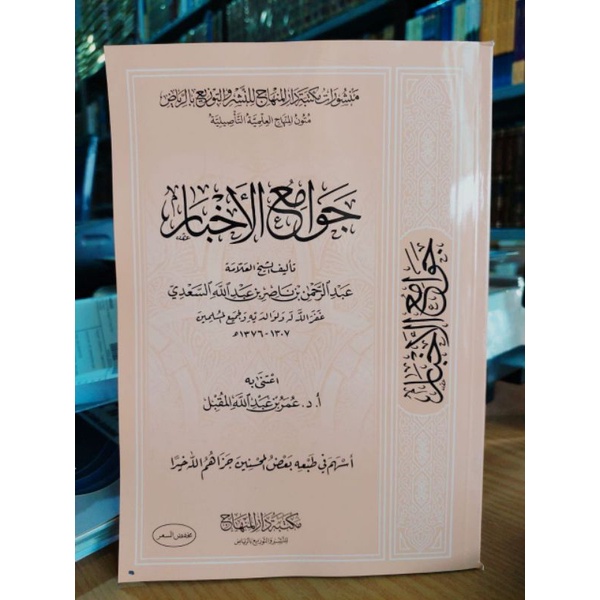 منشورات مكتبة دار المنهاج للنشر والتوزيع بالرياض
متون المنهاج العلمية التأصيلية
جوامع الأخبار
تأليف الشيخ العلامة
عبد الرحمن بن ناصر بن عبد الله السعدي
غفر الله له ولوالديه ولجميع المسلمين
١٣٠٧ - ١٣٧٦هـ
اعتنى به
أ. د. عمر بن عبد الله المقبل
أسهم في طبعه بعض المحسنين جزاهم الله خيرا
مكتبة دار المنهاج
للنشر والتوزيع بالرياض
مخفض السعر
جوامع الأخبار